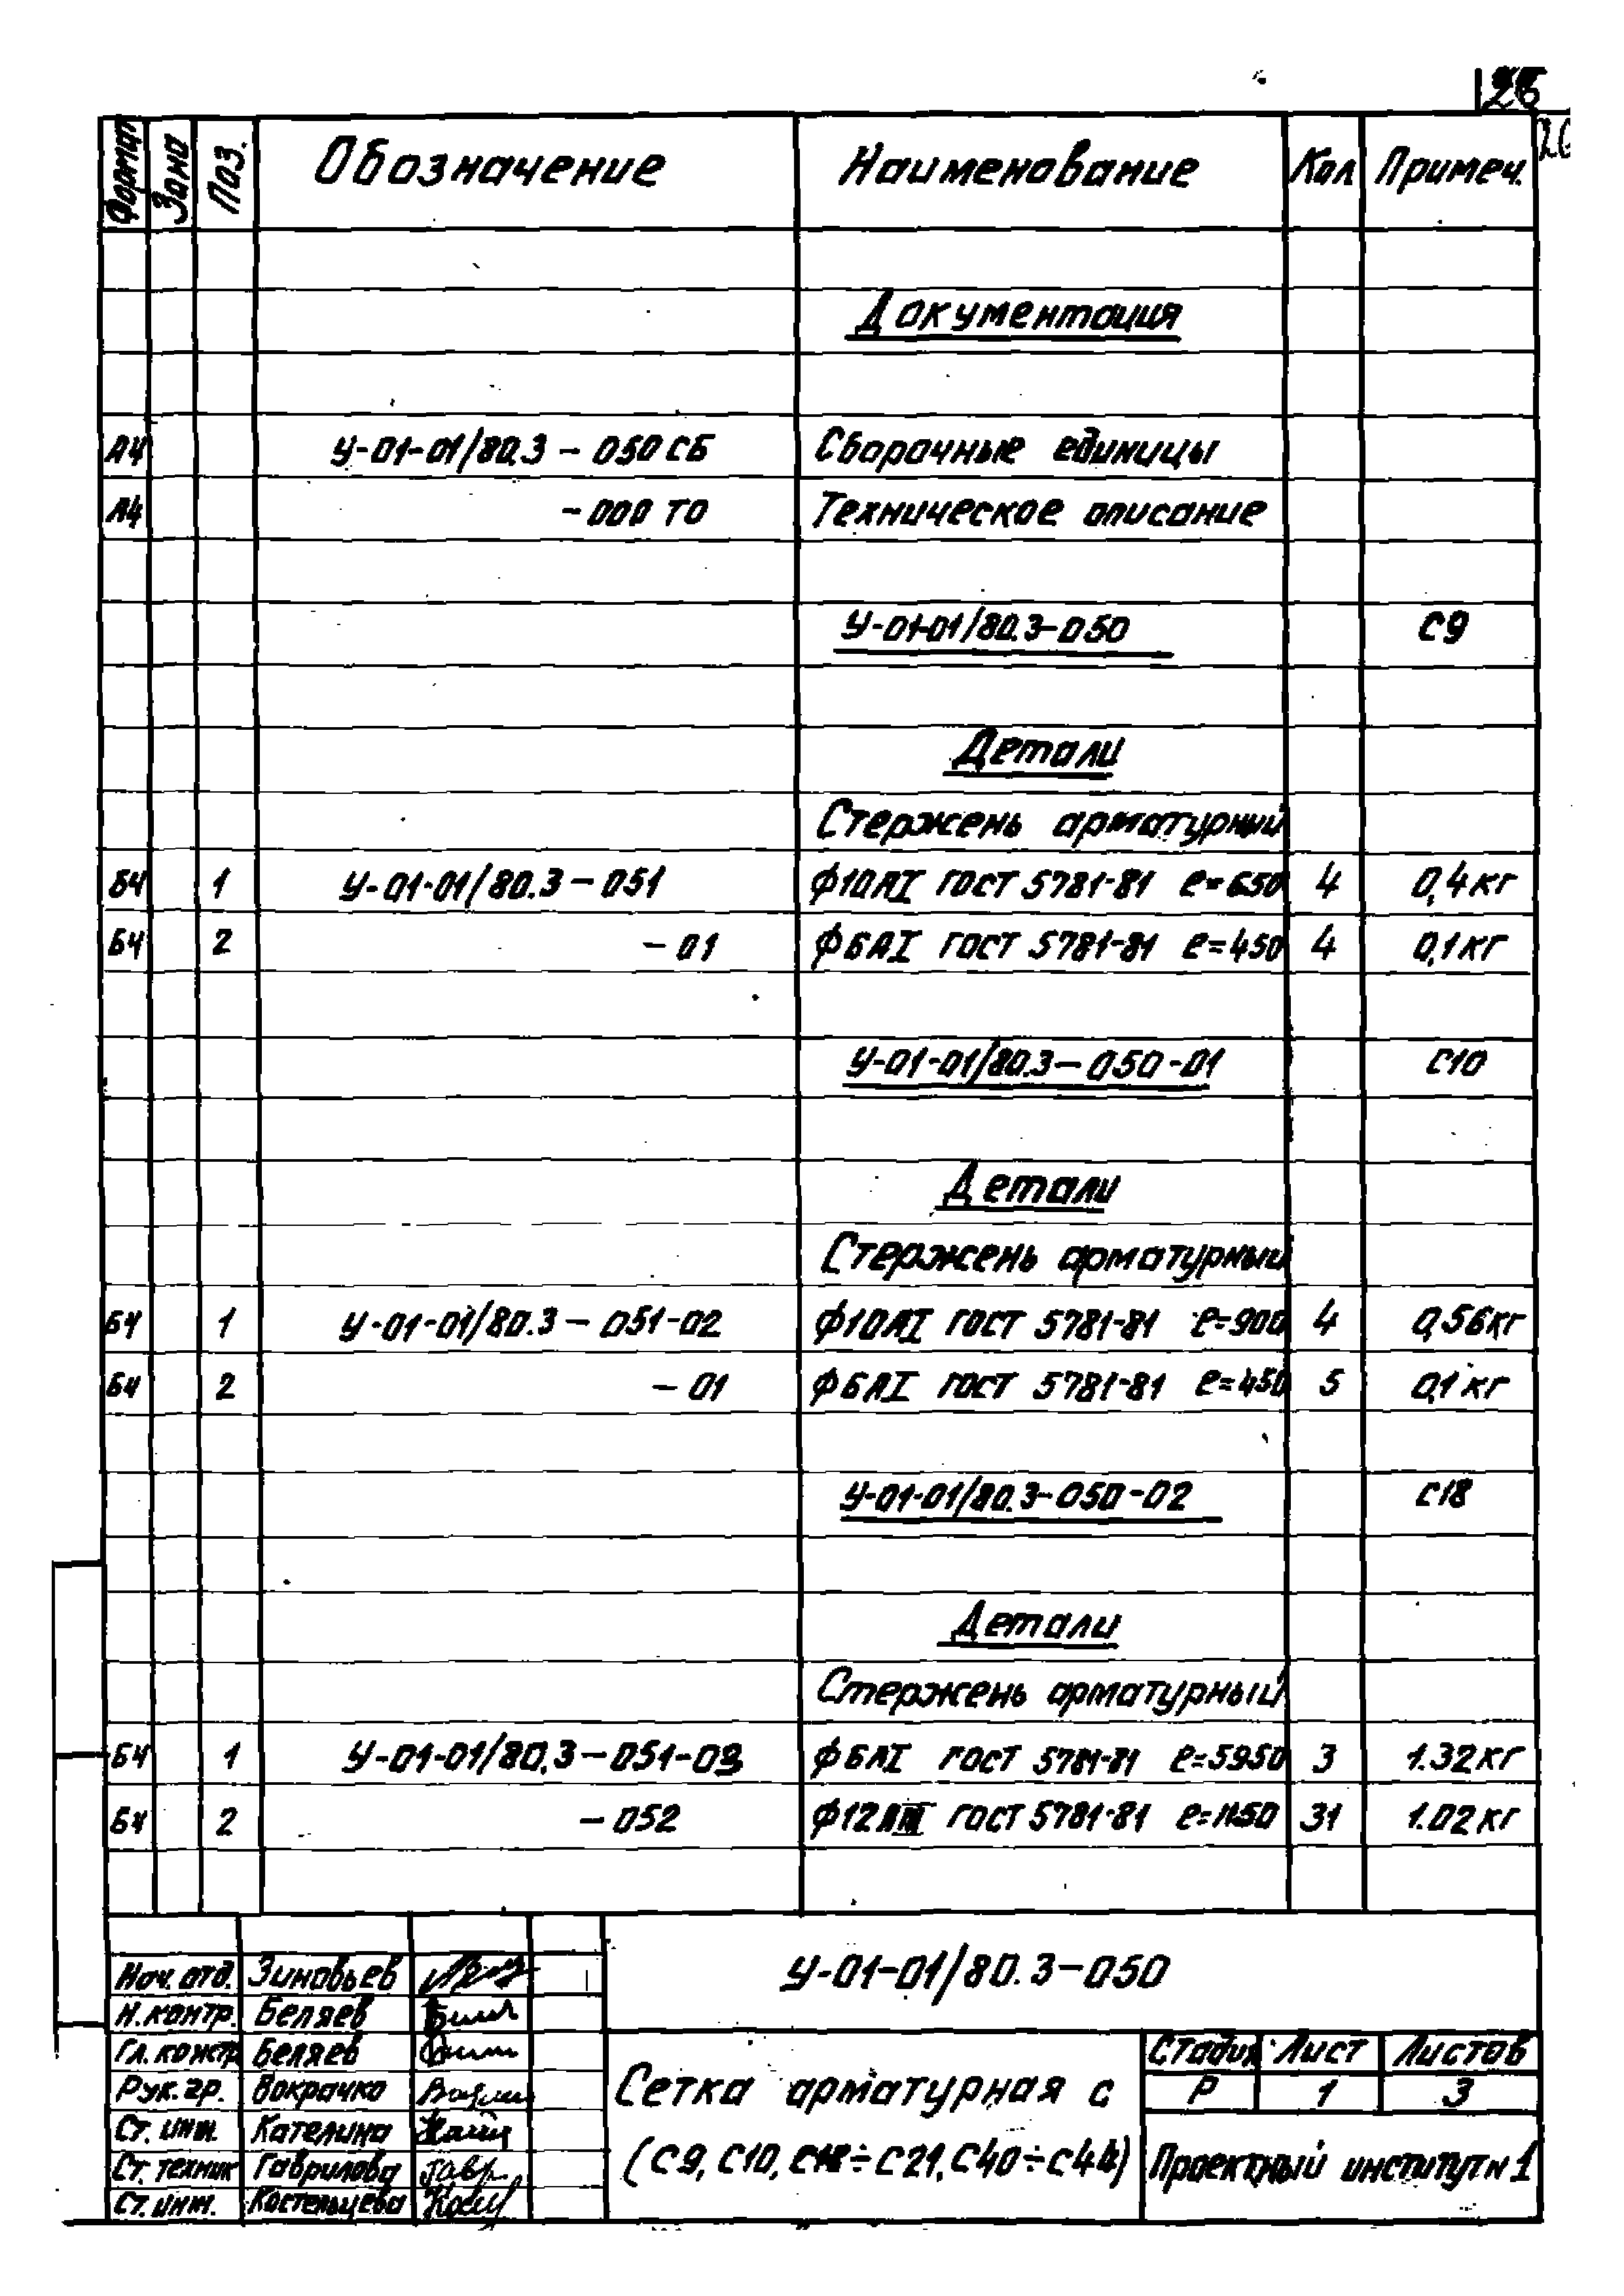 26
Формат Зона Поз. Обозначение Наименование Кол Примеч.
Документация
А4 У-01-01/80.3 - 050 СБ Сборочные единицы
А4 - 000 ТО Техническое описание
У-01-01/80.3-050 С9
Детали
Стержень арматурный
Б4 1 У-01-01/80.3 - 051 Ф10АI ГОСТ 5781-81 ℓ=650 4 0,4кг
Б4 2 - 01 Ф6АI ГОСТ 5781-81 ℓ=450 4 0,1кг
У-01-01/80.3-050-01 С10
Детали
Стержень арматурный
Б4 1 У-01-01/80.3 - 051-02 Ф10АI ГОСТ 5781-81 ℓ=900 4 0,56кг
Б4 2 - 01 Ф6АI ГОСТ 5781-81 ℓ=450 5 0,1кг
У-01-01/80.3-050-02 С18
Детали
Стержень арматурный
Б4 1 У-01-01/80.3-051-03 Ф6АI ГОСТ 5781-81 ℓ=5950 3 1.32кг
Б4 2 - 052 Ф12АIII ГОСТ 5781-81 ℓ=1150 31 1.02кг
У-01-01/80.3-050
Нач. отд. Зиновьев
Н.контр. Беляев
Гл. констр Беляев
Рук. гр. Вокрачко
Ст. инж. Кателина
Ст. техник Гаврилова
Ст. инж. Костельцева
Сетка арматурная С
(С9, С10, С18÷С21, С40÷С44)
Стадия Лист Листов
Р 1 3
Проектный институт №1